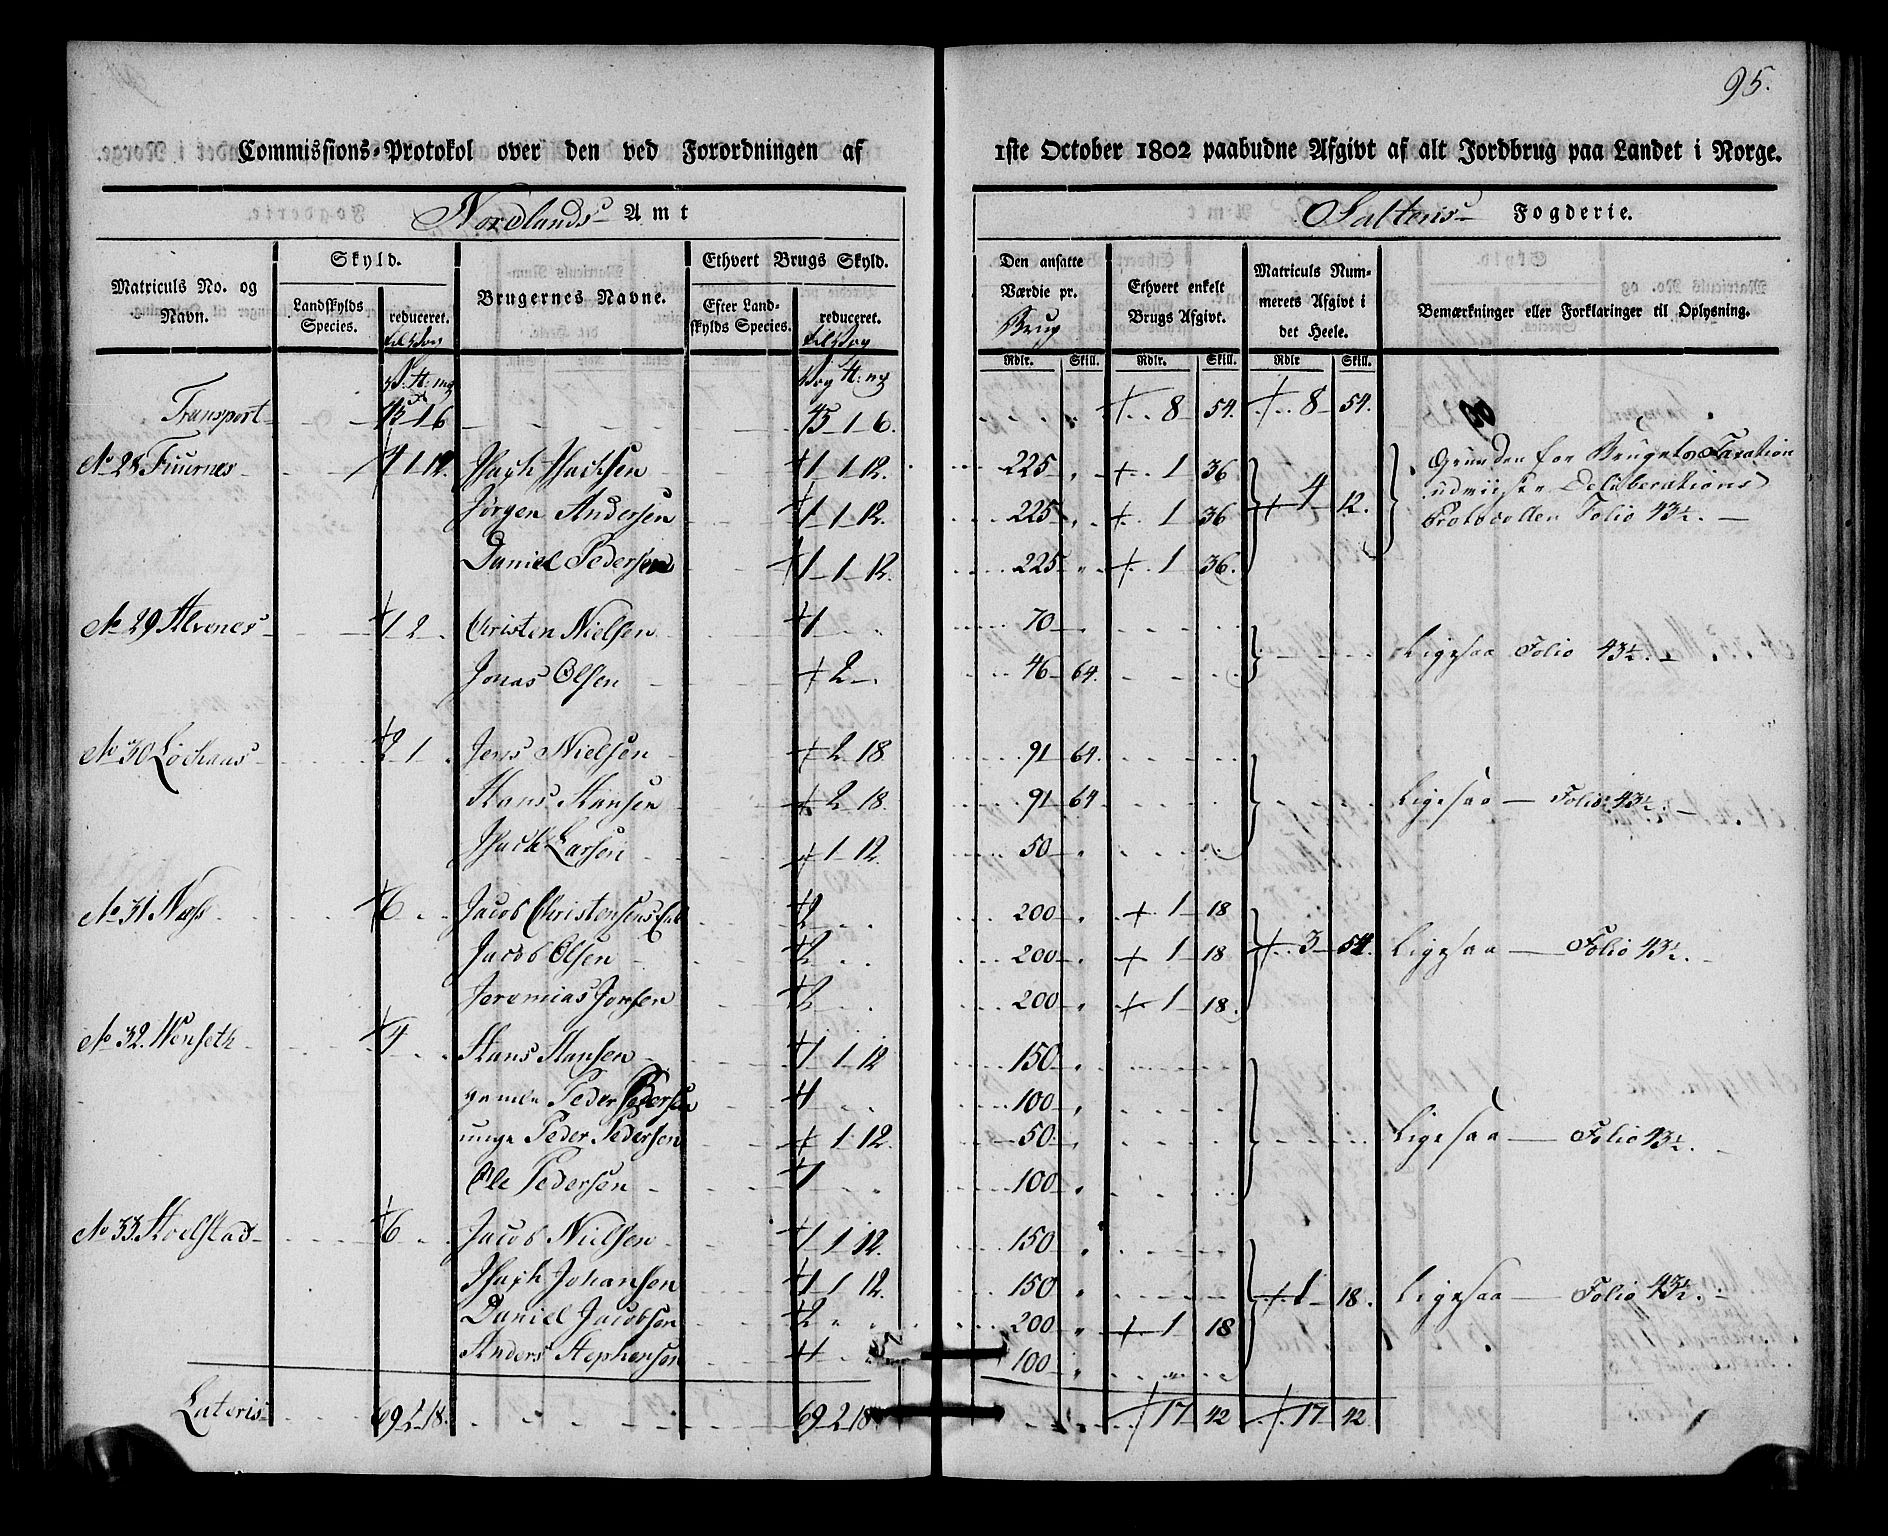 95.
Commissions-Protokol over den ved Forordningen af 1ste October 1802 paabudne Afgivt af alt Jordbrug paa Landet i Norge.
Nordlands Amt Saltens Fogderie.
Matriculs No. og Navn.
Skyld.
Landskylds Species.
reduceret.
Brugernes Navne.
Ethvert Brugs Skyld.
Efter Landskylds Species.
reduceret.
Den ansatte Værdie pr. Brug
Ethvert enkelt Brugs Afgivt.
Matriculs Nummerets Afgivt i det Heele.
Bemærkninger eller Forklaringer til Oplysning.
Rdlr. Skill. Rdlr. Skill. Rdlr Skill.
Transport 45 1 6 45 1 6. 8 54. 8 54.
No 28 Fuurnes 4 1 12. Isach Isachsen 1 1 12. 225 1 36
Jörgen Andersen 1 1 12. 225 1 36 4 12.
Daniel Pedersen 1 1 12. 225 1 36.
Grunden for Brugets Taxation
udviiser Deliberations
Protocollen Folio 43½.
No 29 Alvenes 1 2 Christen Nielsen 1 70
Jonas Olsen 2 46 64. Ligesaa Folio 43½.
No 30 Löchaas 2 1 Jens Nielsen 2 18 91 64.
Hans Hansen 2 18. 91 64 Ligesaa Folio 43½.
Isach Larsen 1 12. 50
No 31 Næss 6 Jacob Christensens 2 200 1 18
Jacob Olsen 2 200 1 18 3 54. Ligesaa Folio 43½.
Jeremias Jonsen 2 200 1 18.
No 32. Venseth 4 Hans Hansen 1 1 12 150
gamle Peder Pedersen 1 100
unge Peder Pedersen 1 12. 50 Ligesaa Folio 43½.
Ole Pedersen 1 100
No 33. Hoelstad 6 Jacob Nielsen 1 1 12. 150
Isach Johansen 1 1 12. 150 1 18. Ligesaa Folio 43½.
Daniel Jacobsen 2 200 1 18
Anders Stephensen 1 100
Lateris 69 2 18. 69 2 18 17 42 17 42